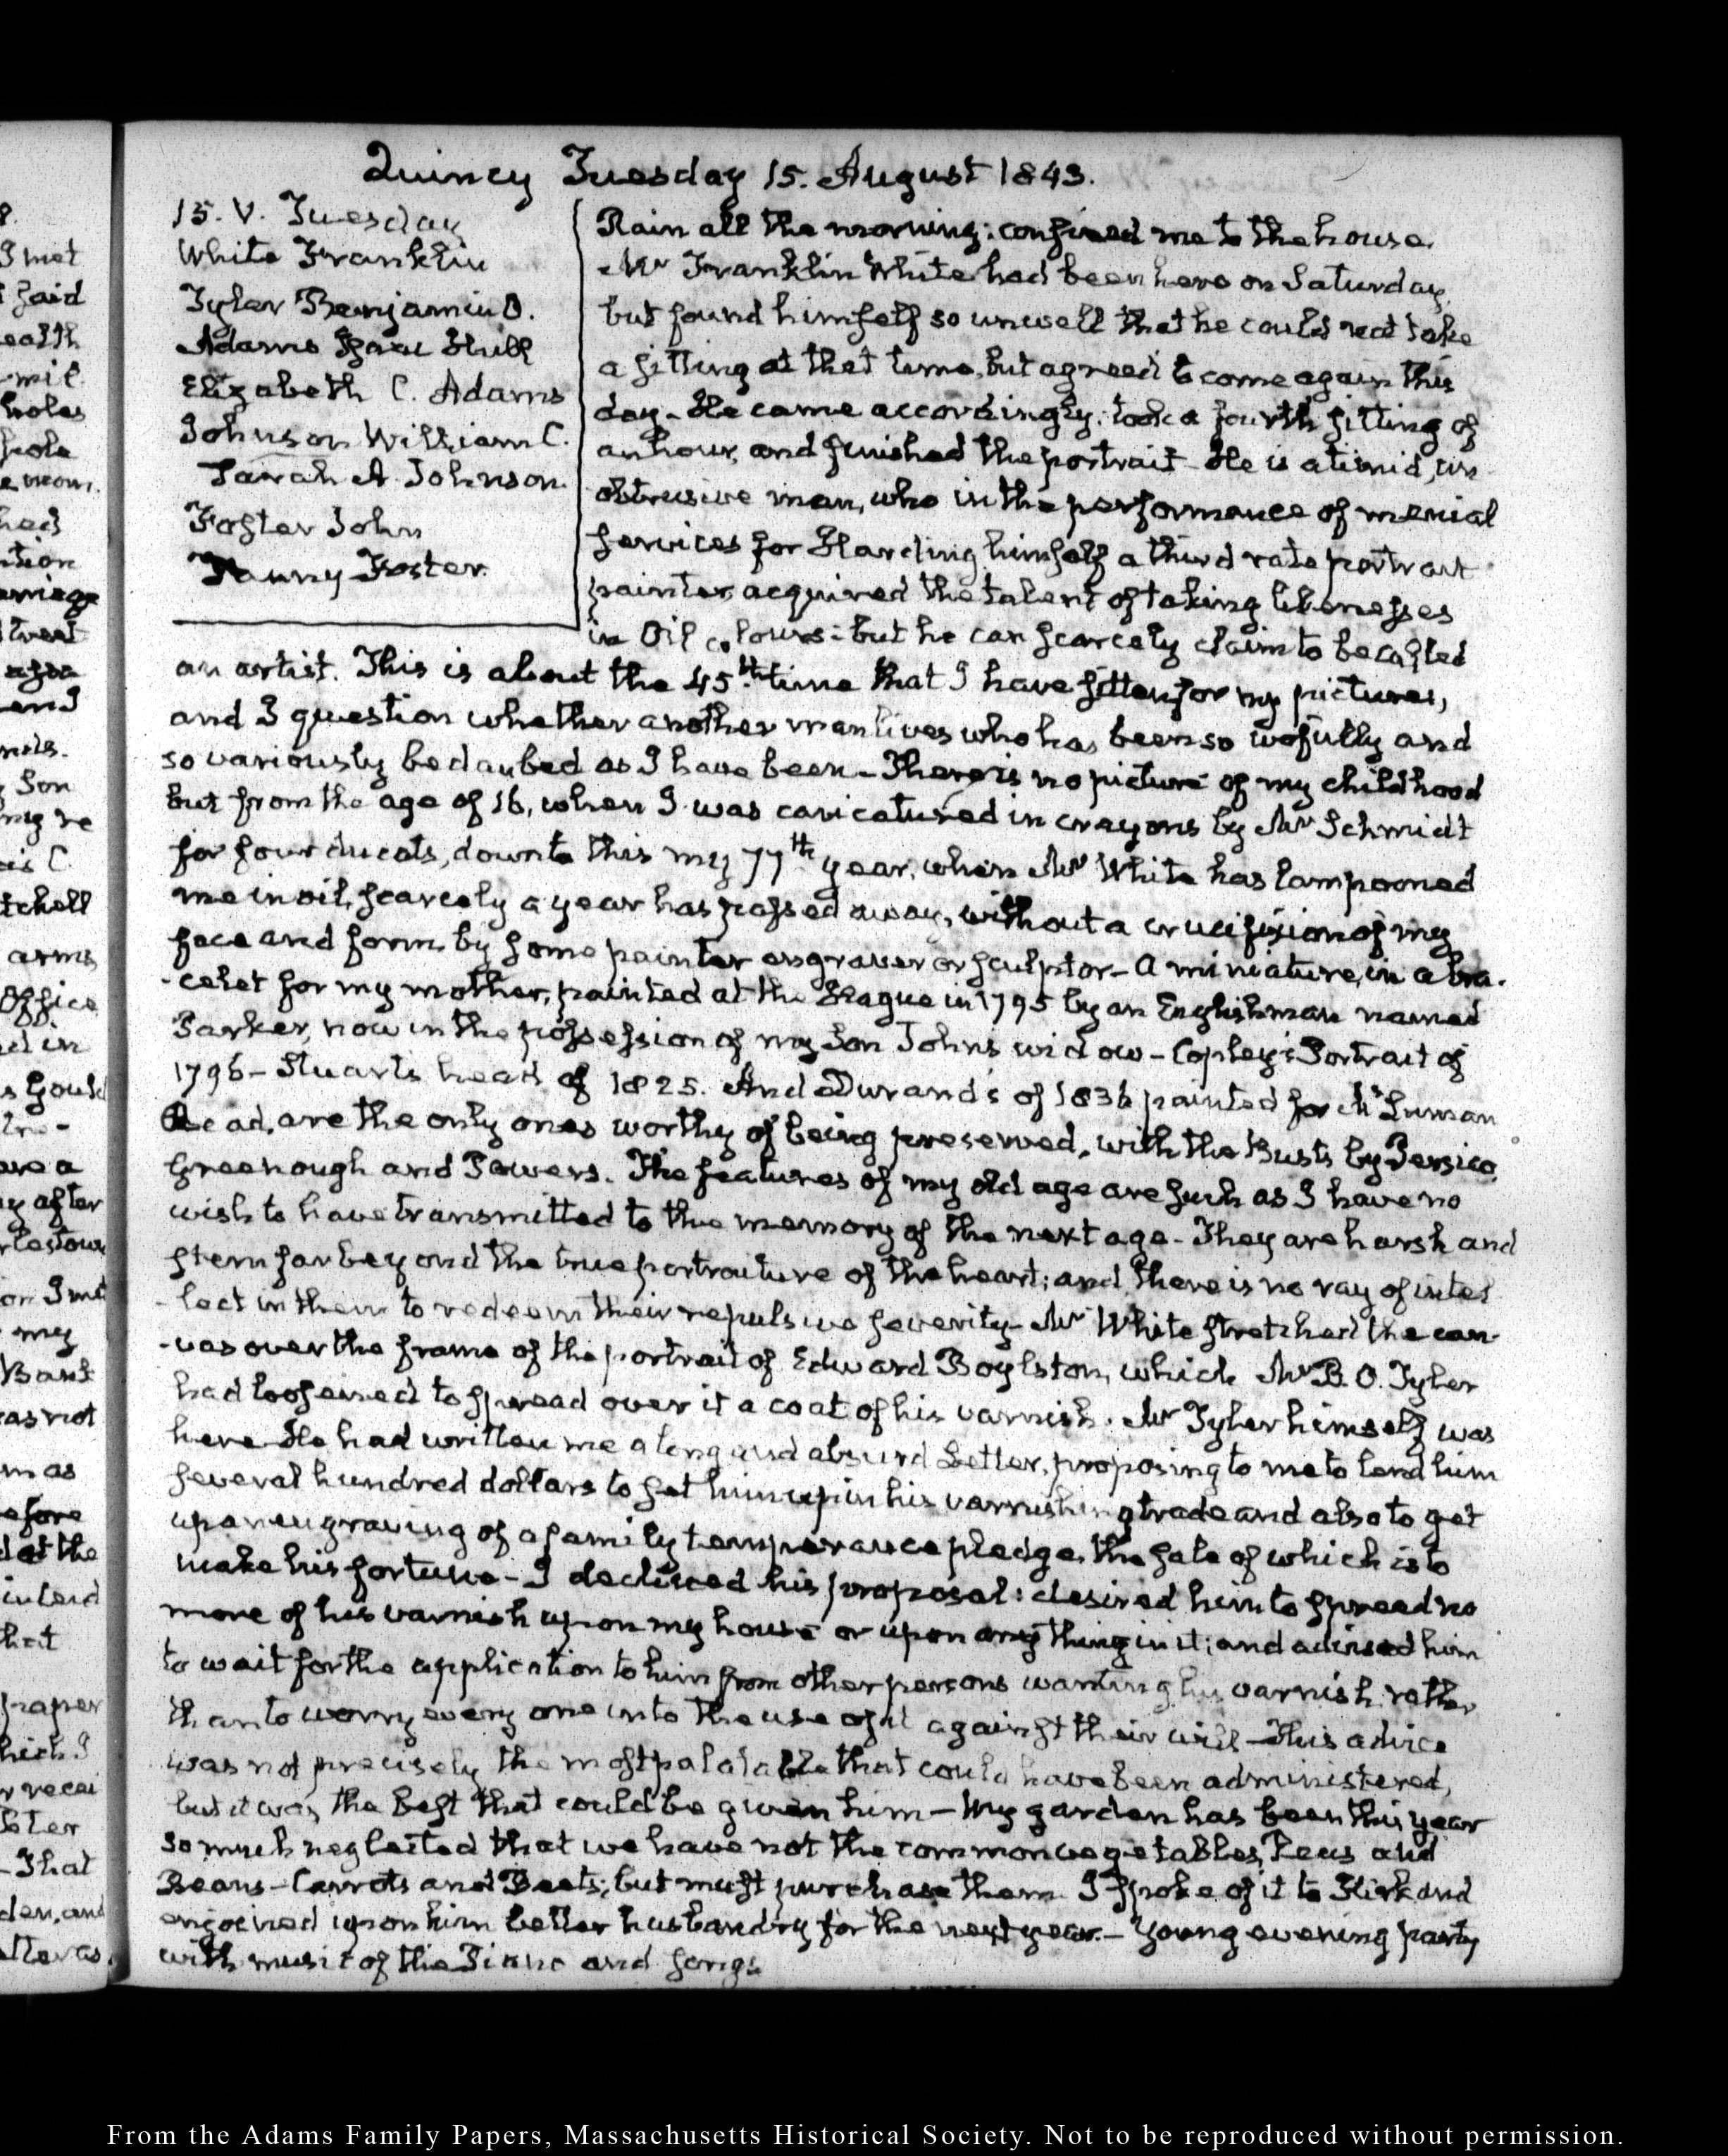 Quincy Tuesday 15. August 1843.
15. V. Tuesday
White Franklin
Tyler Benjamin O.
Adams Isaac Hull
Elizabeth C. Adams
Johnson William C.
Sarah A Johnson.
Foster John
Fanny Foster.
Rain all the morning: confined me to the house.
Mr Franklin White had been here on Saturday,
but found himself so unwell that he could not take
a sitting at that time, but agreed to come again this
day - He came accordingly: took a fourth sitting of
an hour, and finished the portrait - He is a timid, un
obtrusive man, who in the performance of menial
services for Harding himself a third rate portrait
painter, acquired the talent of taking likenesses
in Oil colours: but he can scarcely claim to be called
an artist. This is about the 45th. time that I have sitten for my pictures,
and I question whether another man lives who has been so wofully and
so variously bedaubed as I have been - There is no picture of my childhood
but from the age of 16, when I was caricatured in crayons by Mr Schmidt
for four ducats, down to this my 77th year, when Mr White has lampooned
me in oil, scarcely a year has passed away, without a crucifixion of my
face and form by some painter engraver or sculptor - A miniature, in a bra-
-celet for my mother, painted at the Hague in 1795 by an Englishman named
Parker, now in the possession of my Son John's widow - Copley's Portrait of
1796 - Stuarts head of 1825. And Durand's of 1836 painted for Mr Luman
Read, are the only ones worthy of being preserved, with the Busts by Persico,
Greenough and Powers. The features of my old age are such as I have no
wish to have transmitted to the memory of the next age - They are harsh and
stern far beyond the true portraiture of the heart; and there is no ray of intel
-lect in them to redeem their repulsive severity - Mr White stretched the can-
-vas over the frame of the portrait of Edward Boylston, which Mr B. O. Tyler
had loosened to spread over it a coat of his varnish. Mr Tyler himself was
here - He had written me a long and absurd Letter, proposing to me to lend him
several hundred dollars to set him up in his varnishing trade and also to get
up an engraving of a family temperance pledge, the sale of which is to
make his fortune - I declined his proposal: desired him to spread no
more of his varnish upon my house or upon any thing in it; and advised him
to wait for the application to him from other persons wanting his varnish rather
than to worry every one into the use of it against their will - This advice
was not precisely the most palatable that could have been administered,
but it was the best that could be given him - My garden has been this year
so much neglected that we have not the common vegetables, Peas and
Beans - Carrots and Beets; but must purchase them. I spoke of it to Kirk and
enjoined upon him better husbandry for the next year. - Young evening party
with music of the Piano and songs
From the Adams Family Papers, Massachusetts Historical Society. Not to be reproduced without permission.